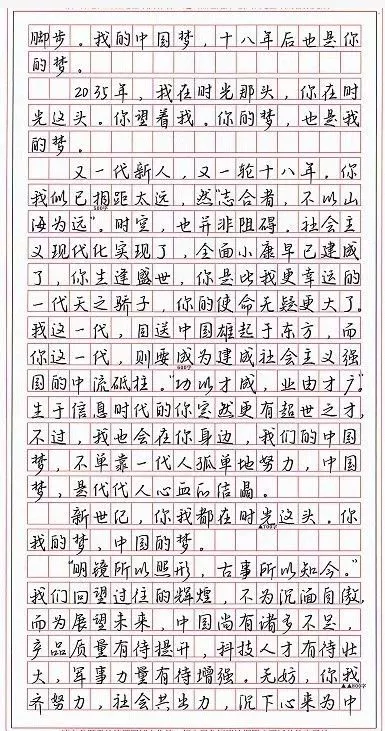 脚步。我的中国梦，十八年后也是你
的梦。
2035年，我在时光那头，你在时
光这头。你望着我。你的梦，也是我
的梦。
又一代新人，又一轮十八年。你
我似已相距太远，然“志合者，不以山
海为远”。时空，也并非阻碍。社会主
义现代化实现了，全面小康早已建成
了，你生逢盛世，你是比我更幸运的
一代天之骄子，你的使命无疑更大了。
我这一代，目送中国雄起于东方，而
你这一代，则要成为建成社会主义强
600字
国的中流砥柱。“功以才成，业由才广”。
生于信息时代的你突然更有超世之才，
不过，我也会在你身边，我们的中国
梦，不单靠一代人孤单地努力，中国
梦，是代代人心血的结晶。
新世纪，你我都在时光这头。你
我的梦，中国的梦。
“明镜所以照形，古事所以知今。”
我们回望过往的辉煌，不为沉湎自傲，
而为展望未来，中国尚有诸多不足，
产品质量有待提升，科技人才有待壮
大，军事力量有待增强。无妨，你我
▲800字
齐努力，社会共出力，沉下心来为中